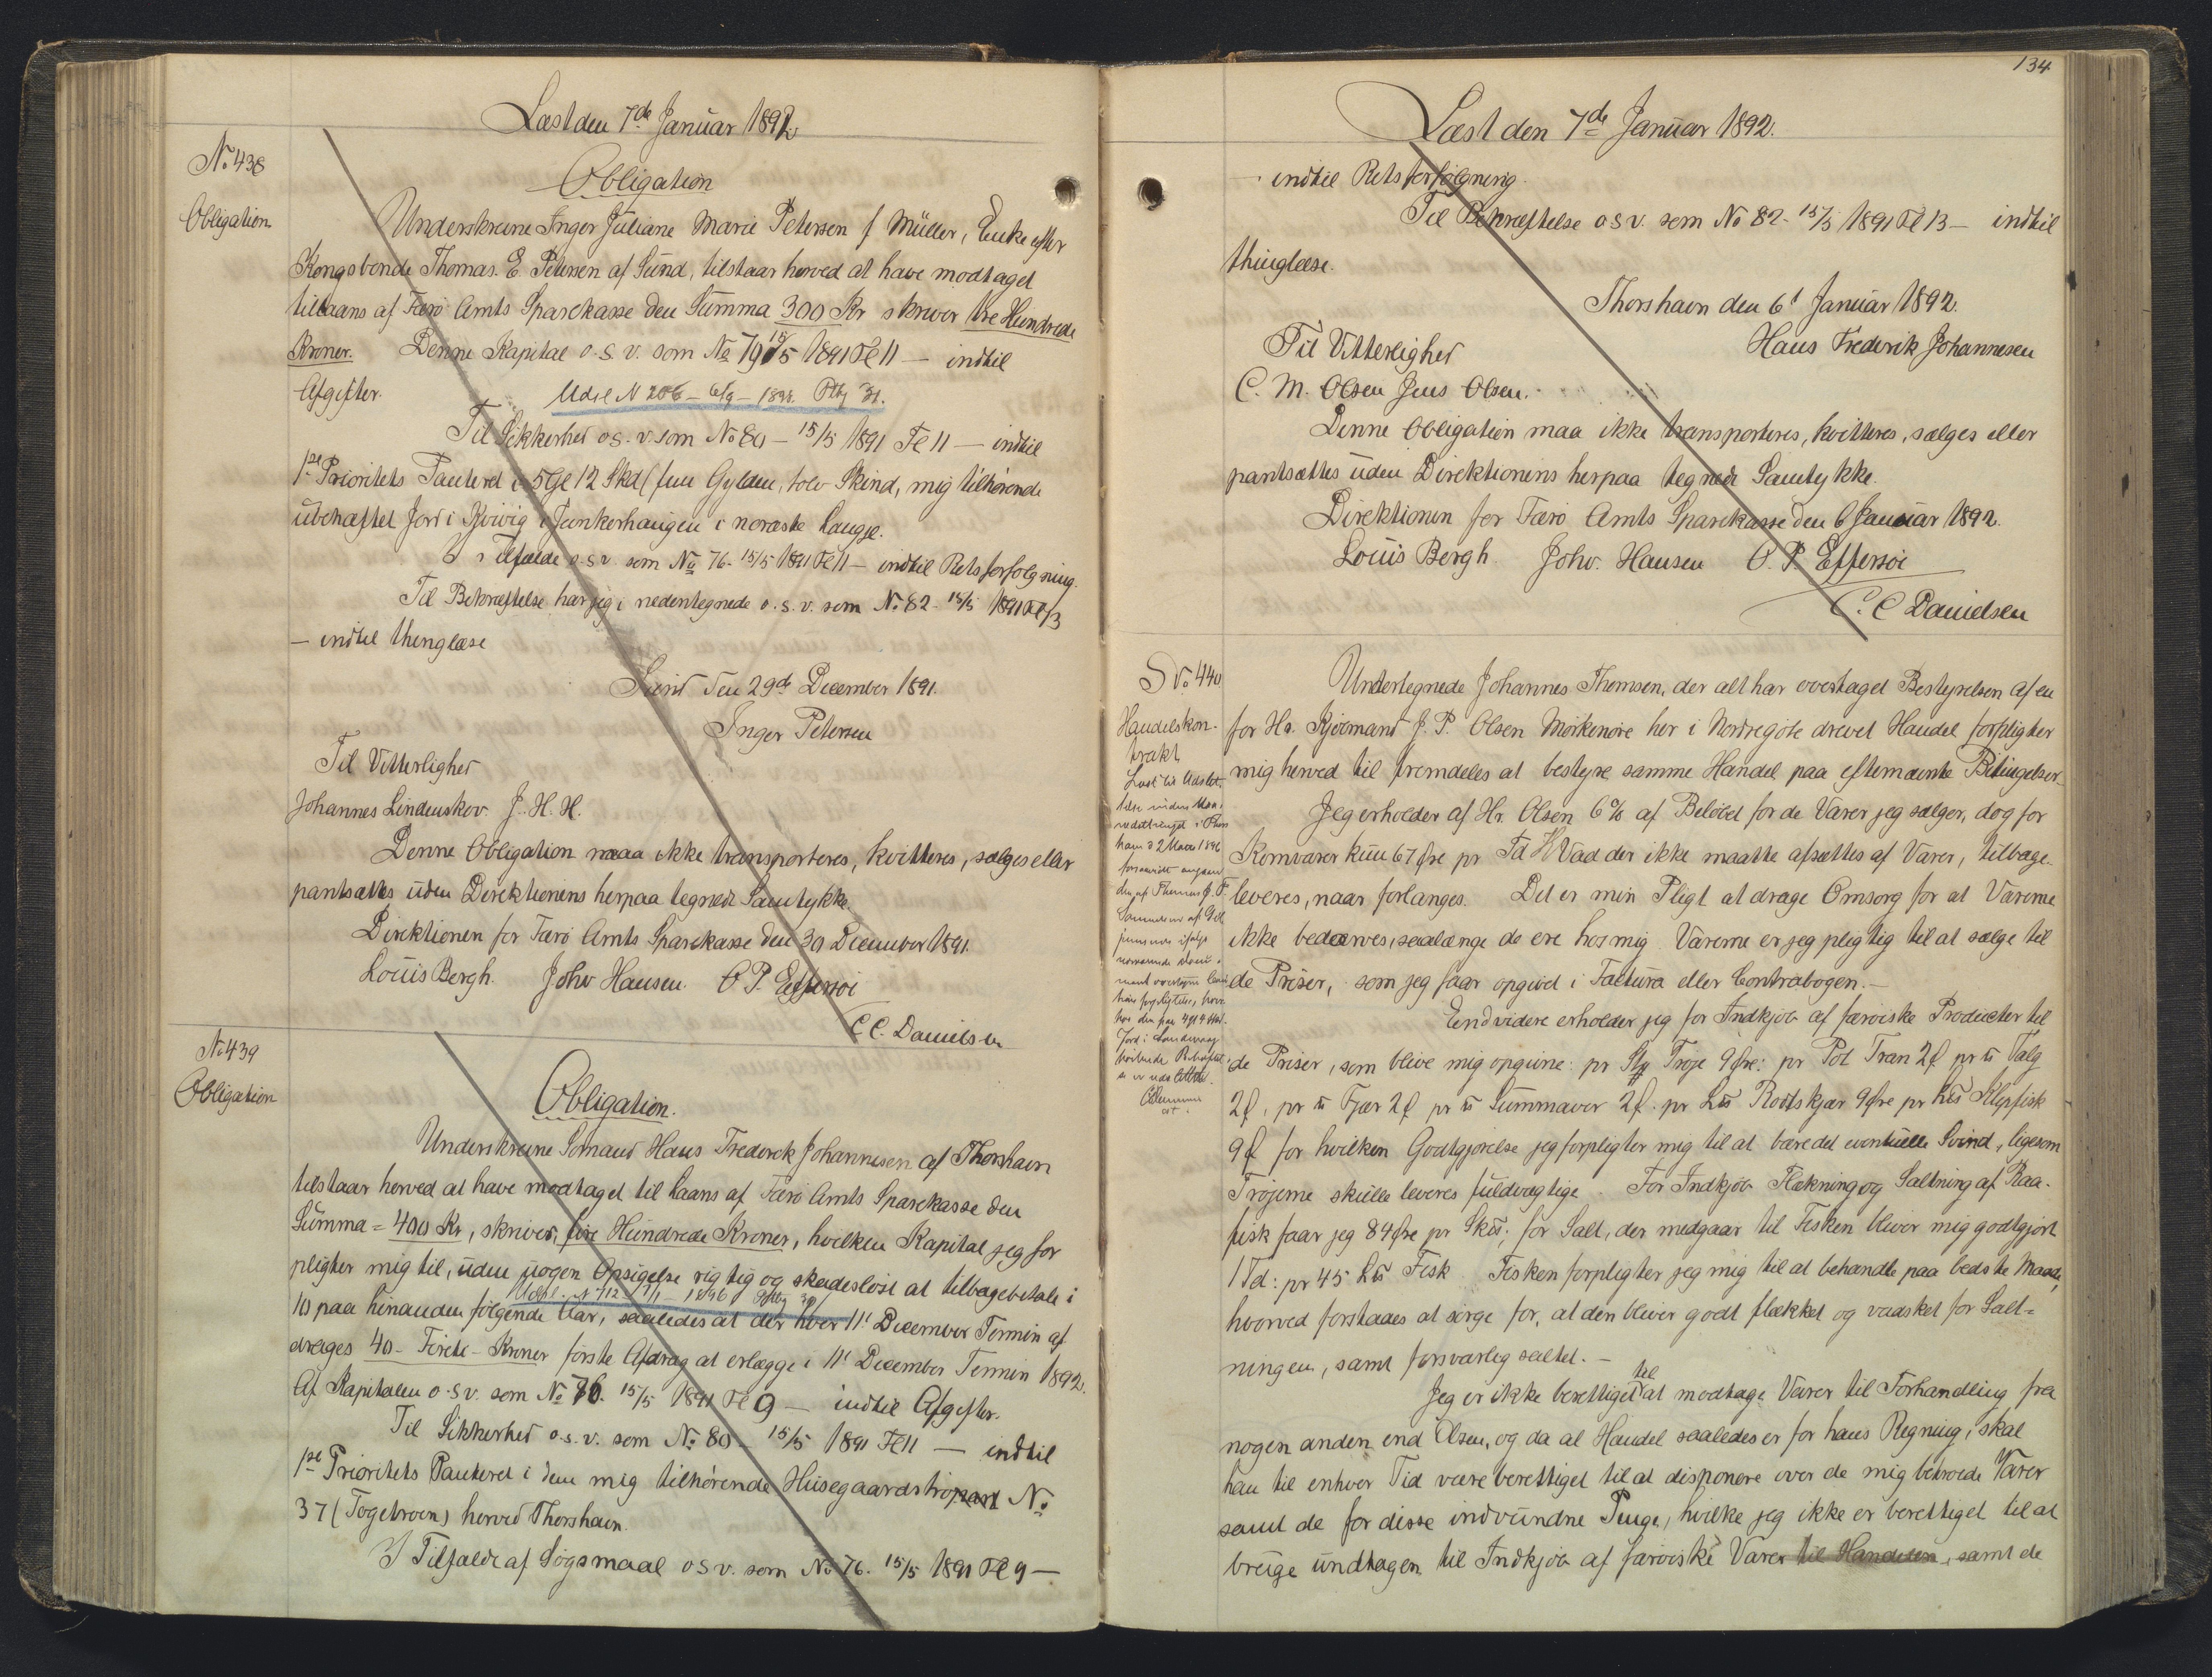 Læst den 7de Januar 1892
No. 438
Obligation
Obligation
Underskrevne Inger Juliane Marie Petersen f Müller, Enke efter
Kongsbonde Thomas. E. Petersen af Sund, tilstaar herved at have modtaget
tillaans af Færø Amts Sparekasse den Summa 300 Kr skriver tre Hundrede
Kroner. Denne Kapital o. s. v. som No 79 15/5 1891 Fol 11 — indtil
Afgifter.
Udsl N 206 — 6/9 — 1898. Pttg 31.
Til Sikkerhed o s. v. som No 80 — 15/5 1891 Fl 11 — indtil
1ste Prioritets Panteret i 5 Gl 12 Skd (fem Gylden, tolv Skind, mig tilhørende
ubehæftet Jord i Kvivig i Junkerhaugen i neræste Laugje.
I Tilfælde o. s v. som No 76- 15/5 1891 Fl 11 — indtil Retsforfølgning.
Til Bekræftelse har jeg i nedentegnede o. s. v. som No 82- 15/5 1891 Fl 13
— indtil thinglæse
Sund den 29de December 1891.
Inger Petersen
Til Vitterlighed
Johannes Lindenskov. J. H. H.
Denne Obligation maa ikke transporteres, kvitteres, sælges eller
pantsættes uden Direktionens herpaa tegnede Samtykke.
Direktionen for Færø Amts Sparekasse den 30 December 1891.
Louis Bergh. Johv Hansen. O P. Effersøe
C C. Danielsen
No 439
Obligation
Obligation.
Underskrevne Sømand Hans Frederik Johannesen af Thorshavn
tilstaar herved at have modtaget til Laans af Færø Amts Sparekasse den
Summa = 400 Kr, skriver, fire Hundrede Kroner, hvilken Kapital jeg for
pligter mig til, uden nogen Opsigelse rigtig og skadesløst at tilbagebetale i
10 paa hinanden følgende Aar, saaledes at der hver 11' December Termin af
drages 40 — Fireti — Kroner første Afdrag at erlægge i 11' December Termin 1892.
Af Kapitalen o. s v. som No 76. 15/5 1891 Fl 9 — indtil Afgifter.
Til Sikkerhed o. s. v. som No 80 — 15/5 1891 Fl 11 — indtil
1ste Prioritets Panteret i dem mig tilhørende Husegaardstropart No
37 (Togetroen) herved Thorshavn.
I Tilfælde af Søgsmaal o s v. som No 76. 15/5 1891 Fl 9 —
134
Læst den 7de Januar 1892.
— indtil Retsforfølgning.
Til Bekræftelse o s v. som No 82- 15/5 1891 Fl 13 — indtil
thinglæse.
Thorshavn den 6' Januar 1892.
Til Vitterlighed Hans Frederik Johannesen
C. M. Olsen Jens Olsen.
Denne Obligation maa ikke transporteres, kvitteres, sælges eller
pantsættes uden Direktionens herpaa tegnede Samtykke.
Direktionen for Færø Amts Sparekasse den 6 Januar 1892.
Louis Bergh. Johv. Hansen O. P. Effersøe
C. C Danielsen
No. 440
Handelskon-
trakt
Undertegnede Johannes Thomsen, der alt har overtaget Bestyrelsen af en
for Hr. Kjøbmand J. P. Olsen Mørkenøre her i Nordregøte drevet Handel forpligter
mig herved til fremdeles at bestyre samme Handel paa efternævnte Betingelser.
Jeg erholder af Hr. Olsen 6% af Beløbet for de Varer jeg sælger, dog for
Kornvarer kun 67 Øre pr Td Hvad der ikke maatte afsættes af Varer, tilbage-
leveres, naar forlanges. Det er min Pligt at drage Omsorg for at Varerne
ikke bedærves, saalænge de ere hos mig. Varerne er jeg pligtig til at sælge til
de Priser, som jeg faar opgivet i Factura eller Contrabogen. —
Endvidere erholder jeg for Indkjøb af færøiske Producter til
de Priser, som blive mig opgivne: pr Stk Trøje 9 Øre: pr Pot Tran 2 Ø pr ℔ Talg
2 Ø, pr ℔ Fjær 2 Ø pr ℔ Summaver 2 Ø. pr L℔ Rodtskjær 9 Øre pr L℔ Klipfisk
9 Ø for hvilken Godtgjørelse jeg forpligter mig til at bære det eventuelle Svind, ligesom
Trøjerne skulle leveres fuldvægtige. For Indkjøb Flækning og Saltning af Raa-
fisk faar jeg 84 Øre pr Sk℔; for Salt, der medgaar til Fisken bliver mig godtgjort
1 Td: pr 45 L℔ Fisk. Fisken forpligter jeg mig til at behandle paa bedste Maade,
hvorved forstaaes at sørge for, at den bliver godt flækket og vadsket før Salt=
ningen, samt forsvarlig saltet. —
Jeg er ikke berettiget til at modtage Varer til Forhandling fra
nogen anden end Olsen, og da al Handel saaledes er for hans Regning, skal
han til enhver Tid være berettiget til at disponere over de mig betroede Varer
samt de for disse indvundne Penge, hvilke jeg ikke er berettiget til at
bruge undtagen til Indkjøb af færøiske Varer til Handelen, samt de